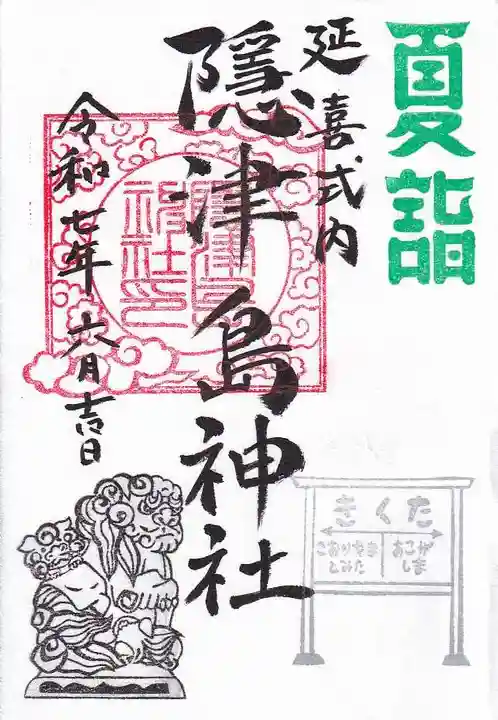 夏詣
延喜式内
隠津島神社
令和七年六月吉日
きくた
こおりやまとみた
あこがしま